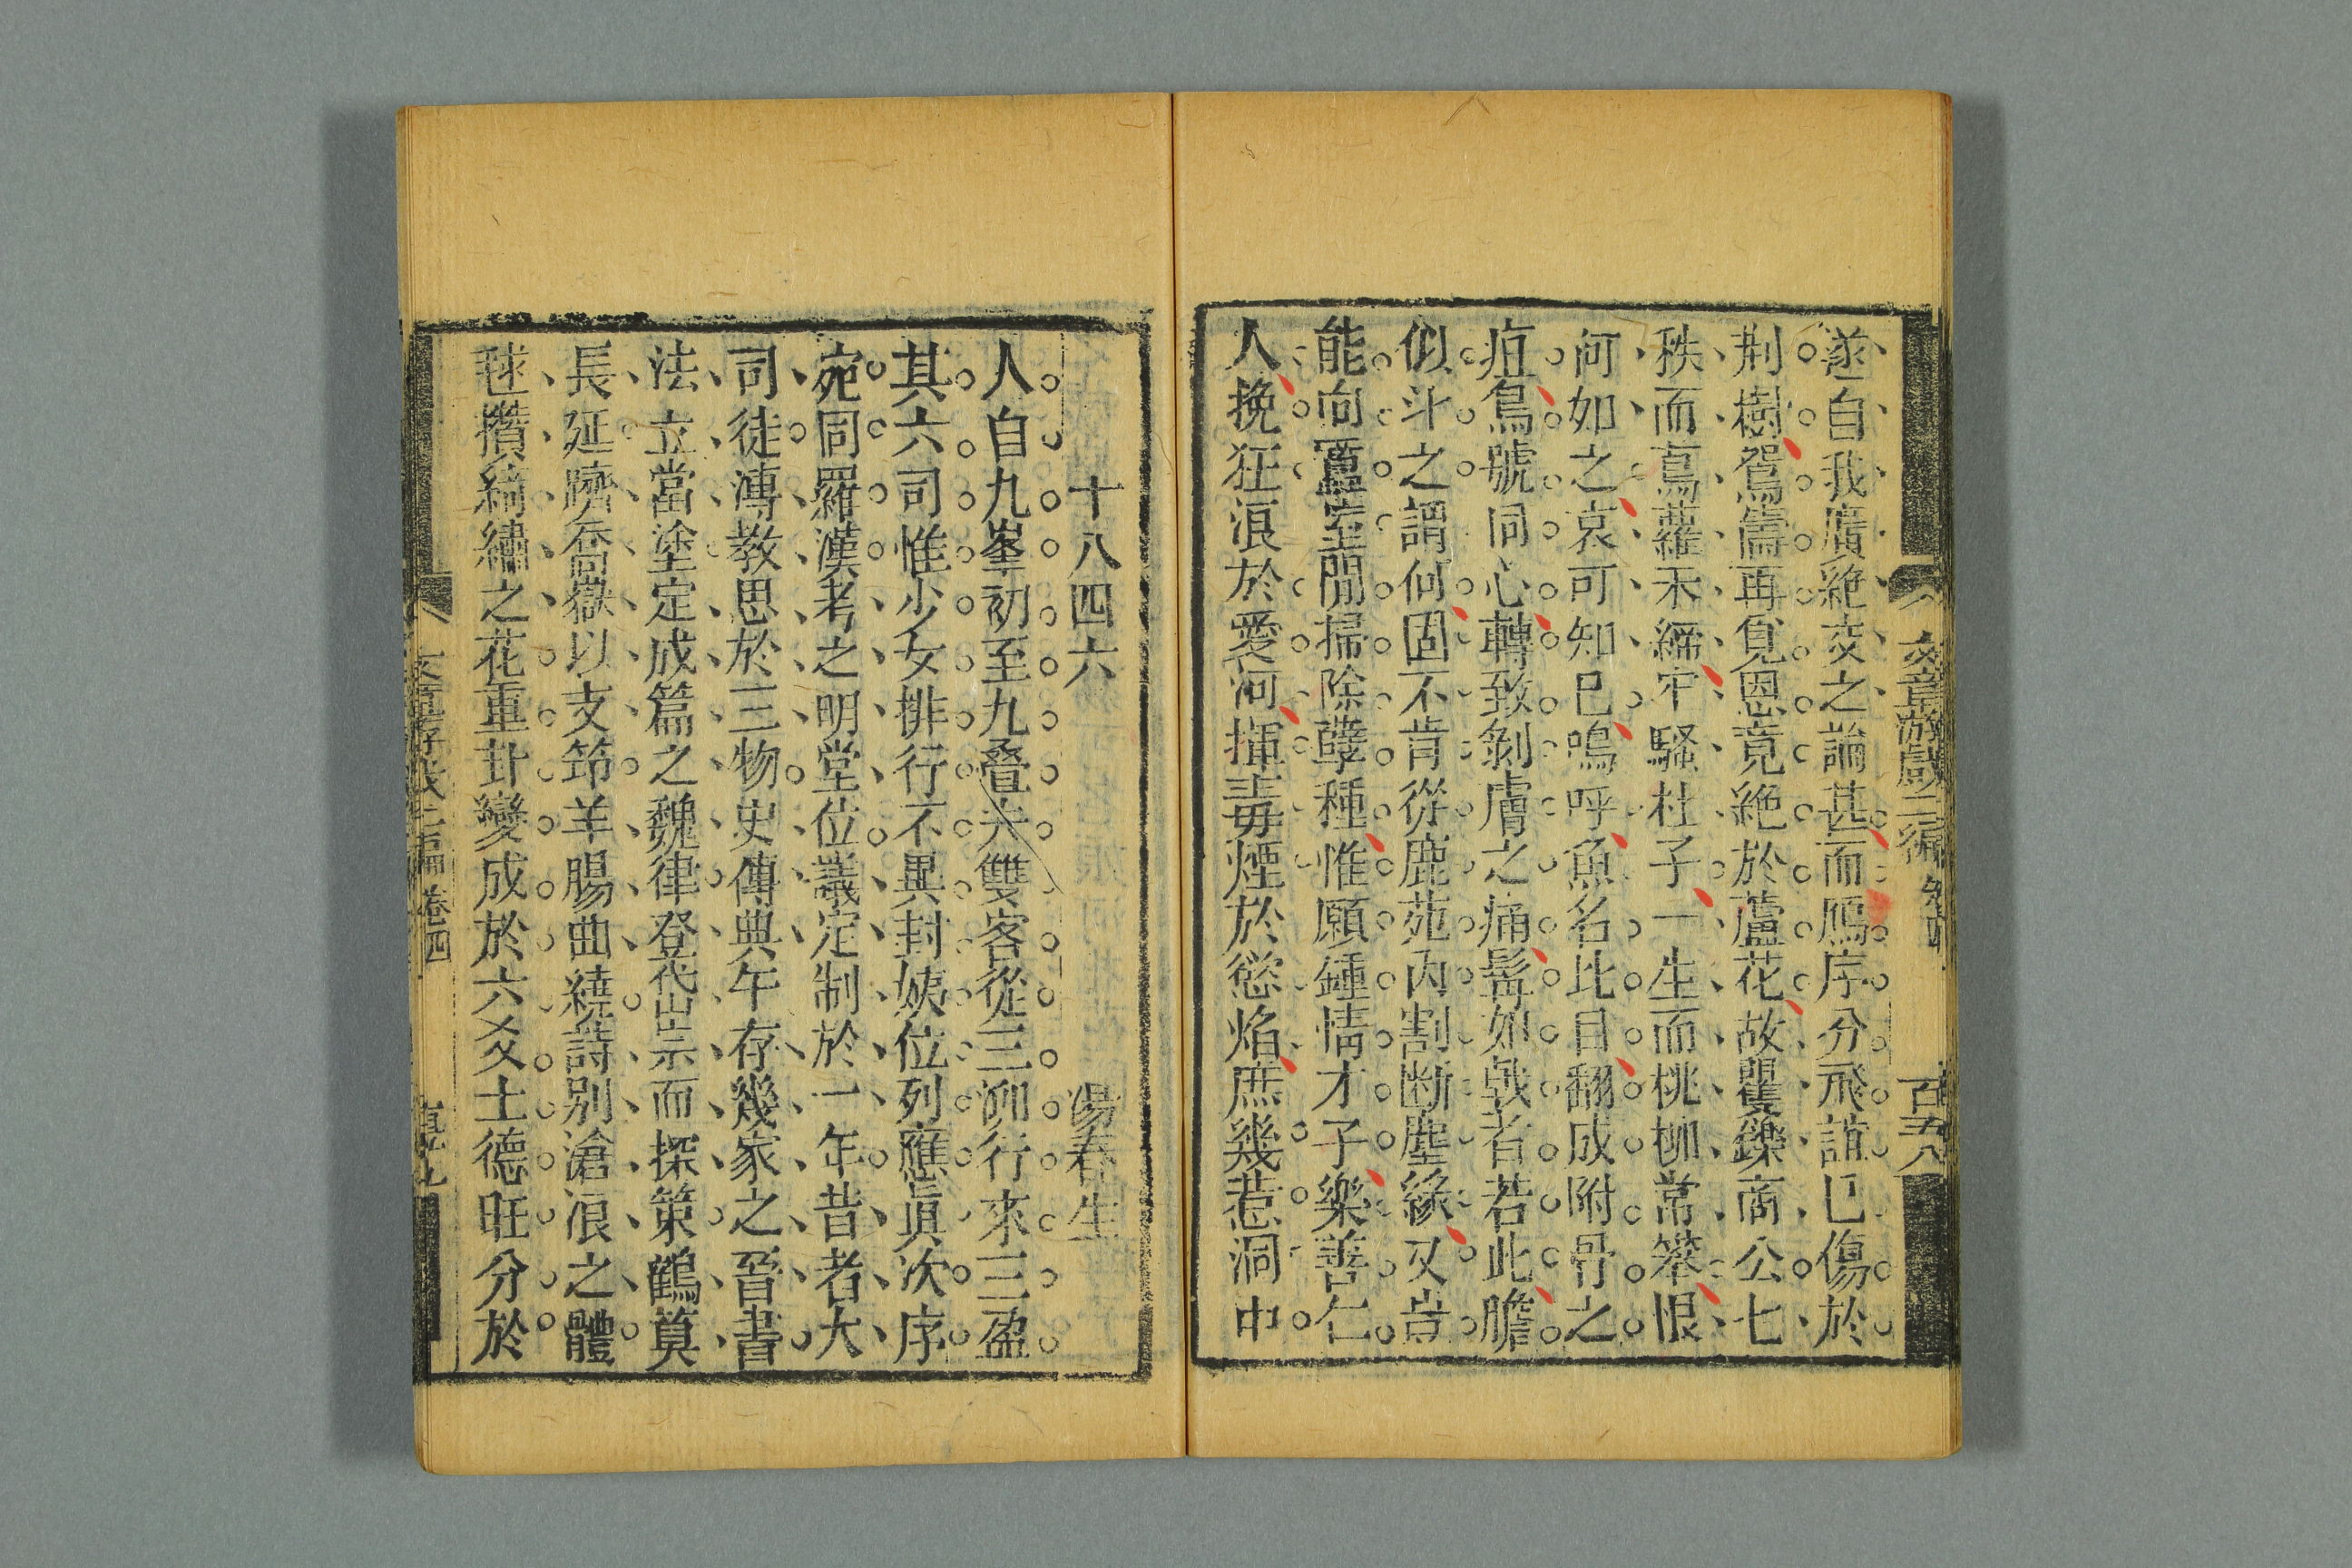 文章游戲二編 卷四 百五八
遂自我廣絶交之論甚而鴈序分飛誼已傷於
荆樹鴛儔再覓恩竟絶於蘆花故矍鑠商公七
秩而蔦蘿未締牢騷杜子一生而桃柳常䇶恨
何如之哀可知已嗚呼魚名比目翻成附骨之
疽鳥號同心轉致剝膚之痛髯如戟者若此膽
似斗之謂何固不肯從鹿苑内割断塵緣又豈
能向蠶室閒掃除孽種惟願鍾情才子樂善仁
人挽狂浪於愛河揮毒煙於慾焰庶幾惹洞中
十八四六 湯春生
人自九峯初至九叠夫雙客從三泖行來三盈
其六司惟少女排行不異封姨位列應眞次序
宛同羅漢考之明堂位議定制於一年昔者大
司徒溥教思於三物史傳典午存幾家之晉書
法立當塗定成篇之魏律登岱宗而探策鶴蓂
長延躋喬嶽以支筇羊腸曲繞詩别滄浪之體
毬攢綺繡之花重卦變成於六爻土德旺分於
卷四